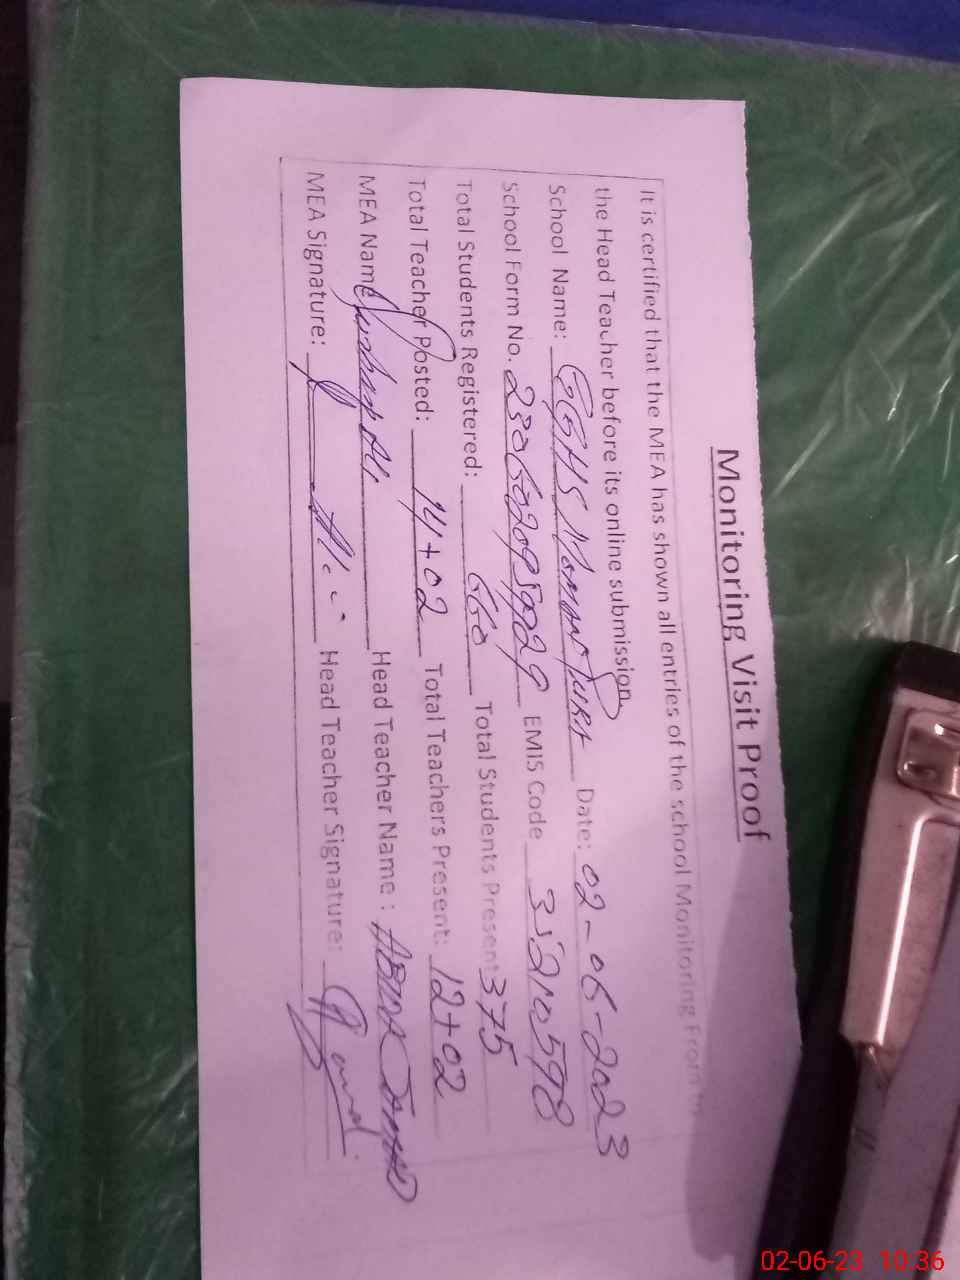 Monitoring Visit Proof
It is certified that the MEA has shown all entries of the school Monitoring From to
the Head Teacher before its online submission
School Name: GGHS Date: 02-06-2023
School Form No. EMIS Code
Total Students Registered: 660 Total Students Present 375
Total Teacher Posted: 14+02 Total Teachers Present: 12+02
MEA Name Ali Head Teacher Name:
MEA Signature: Head Teacher Signature:
02-06-23 10:36